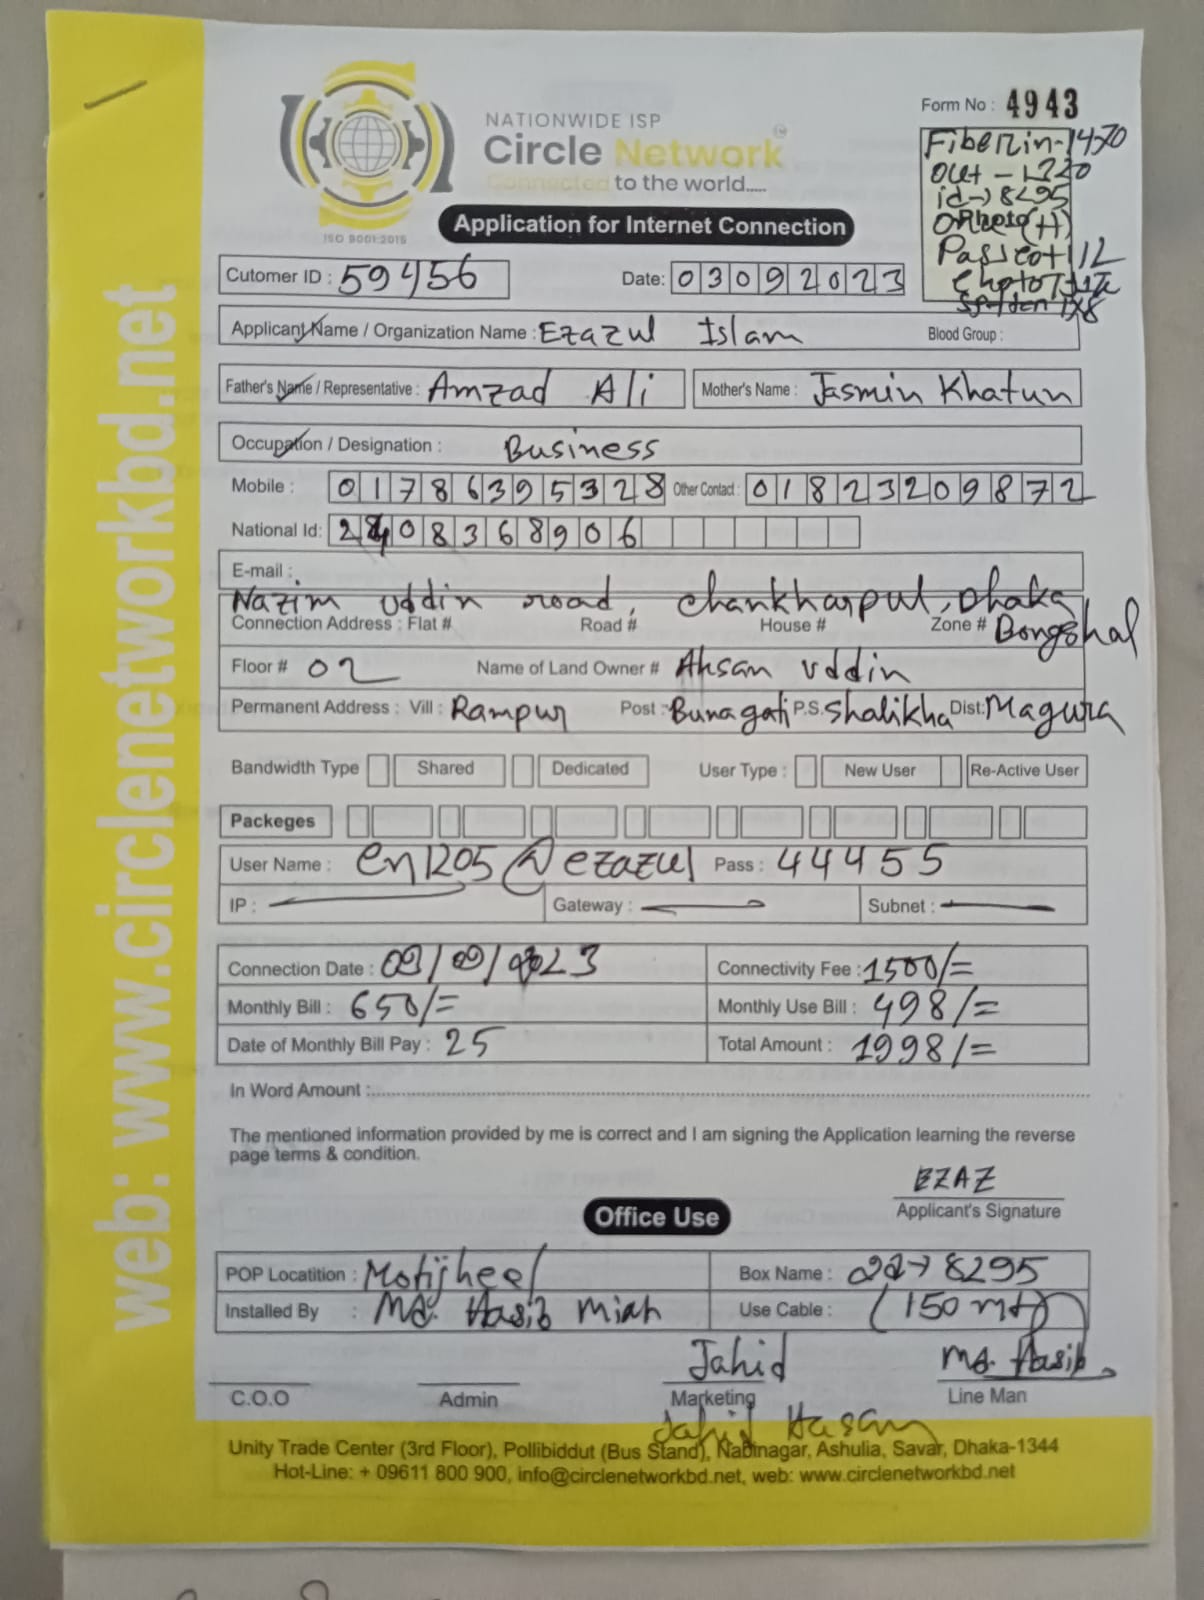 NATIONWIDE ISP
Circle Network
Connected to the world.....
ISO 9001:2015
Form No : 4943
Fiber in-1470
out - 1320
id→8295
Photo (H)
Application for Internet Connection
Cutomer ID : 59456 Date: 03092023
Applicant Name / Organization Name : Ezazul Islam Blood Group :
Father's Name / Representative : Amzad Ali Mother's Name : Jasmin Khatun
Occupation / Designation : Business
Mobile : 01786395328 Other Contact : 01823209872
National Id: 2408368906
E-mail :
Nazim uddin road, Chankharpul, Dhaka
Connection Address : Flat # Road # House # Zone # Bongshal
Floor # 02 Name of Land Owner # Ahsan uddin
Permanent Address : Vill : Rampur Post : Bunagati P.S. Shalikha Dist: Magura
Bandwidth Type Shared Dedicated User Type : New User Re-Active User
Packeges
User Name : en1205@ezazul Pass : 44455
IP : Gateway : Subnet :
Connection Date : 03/09/2023 Connectivity Fee : 1500/=
Monthly Bill : 650/= Monthly Use Bill : 498/=
Date of Monthly Bill Pay : 25 Total Amount : 1998/=
In Word Amount :
The mentioned information provided by me is correct and I am signing the Application learning the reverse
page terms & condition.
EZAZ
Applicant's Signature
Office Use
POP Locatition : Motijheel Box Name : id→8295
Installed By : Md. Hasib Miah Use Cable : (150 mt)
Jahid Md. Hasib
C.O.O Admin Marketing Line Man
Jahid Hasan
Unity Trade Center (3rd Floor), Pollibiddut (Bus Stand), Nabinagar, Ashulia, Savar, Dhaka-1344
Hot-Line: + 09611 800 900, info@circlenetworkbd.net, web: www.circlenetworkbd.net
web: www.circlenetworkbd.net